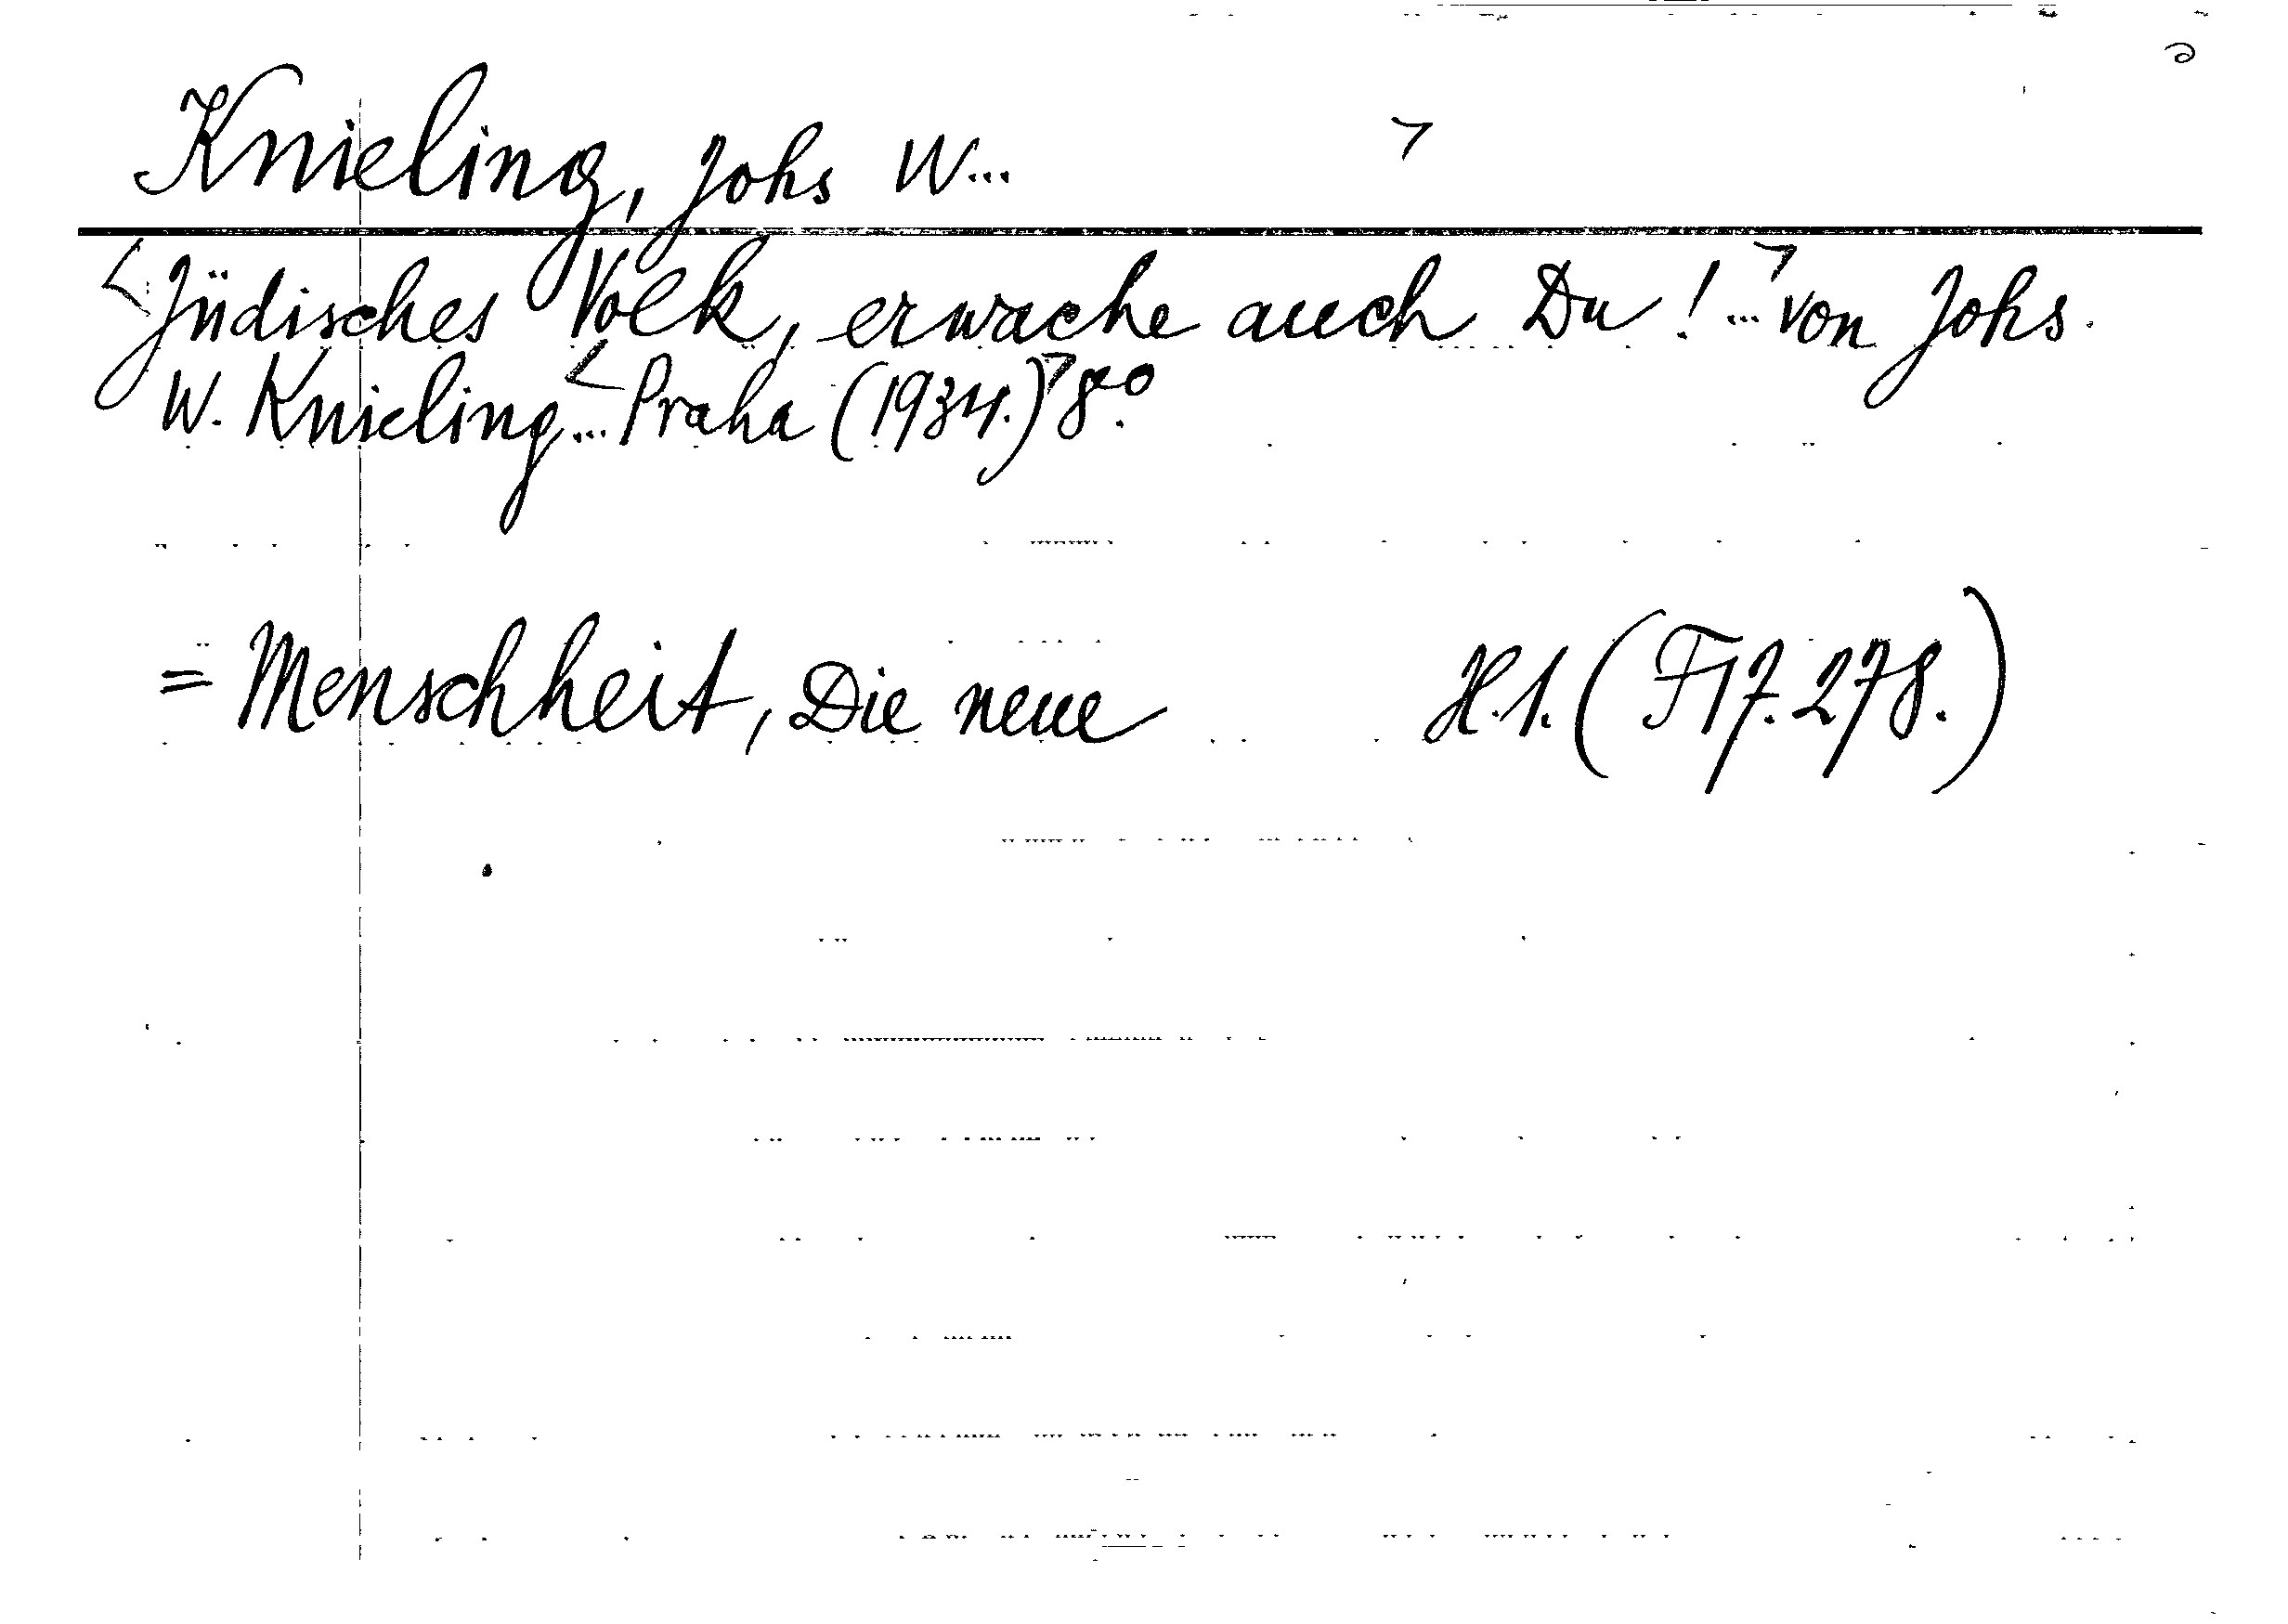 Knieling, Johs W...
Jüdisches Volk, erwache auch Du! ... von Johs.
W. Knieling ... Praha (1934.) 8°.
= Menschheit, Die neue H.1. (F 17. 278.)